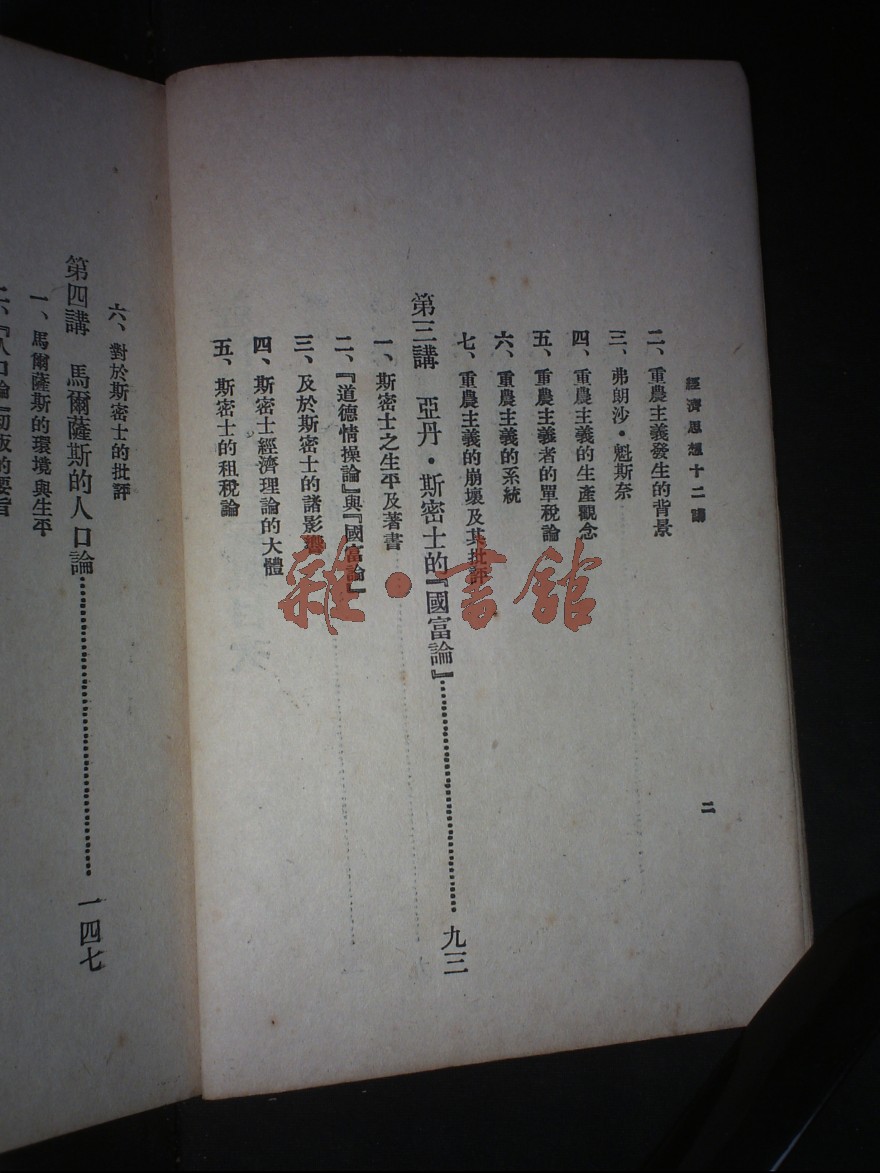 經濟思想十二講
二
二、重農主義發生的背景
三、弗朗沙·魁斯奈
四、重農主義的生產觀念
五、重農主義者的單税論
六、重農主義的系統
七、重農主義的崩壞及其批評
第三講 亞丹·斯密士的『國富論』……九三
一、斯密士之生平及著書
二、『道德情操論』與『國富論』
三、及於斯密士的諸影響
四、斯密士經濟理論的大體
五、斯密士的租税論
六、對於斯密士的批評
第四講 馬爾薩斯的人口論……一四七
一、馬爾薩斯的環境與生平
二、『人口論』初版的要旨
雜·書舘